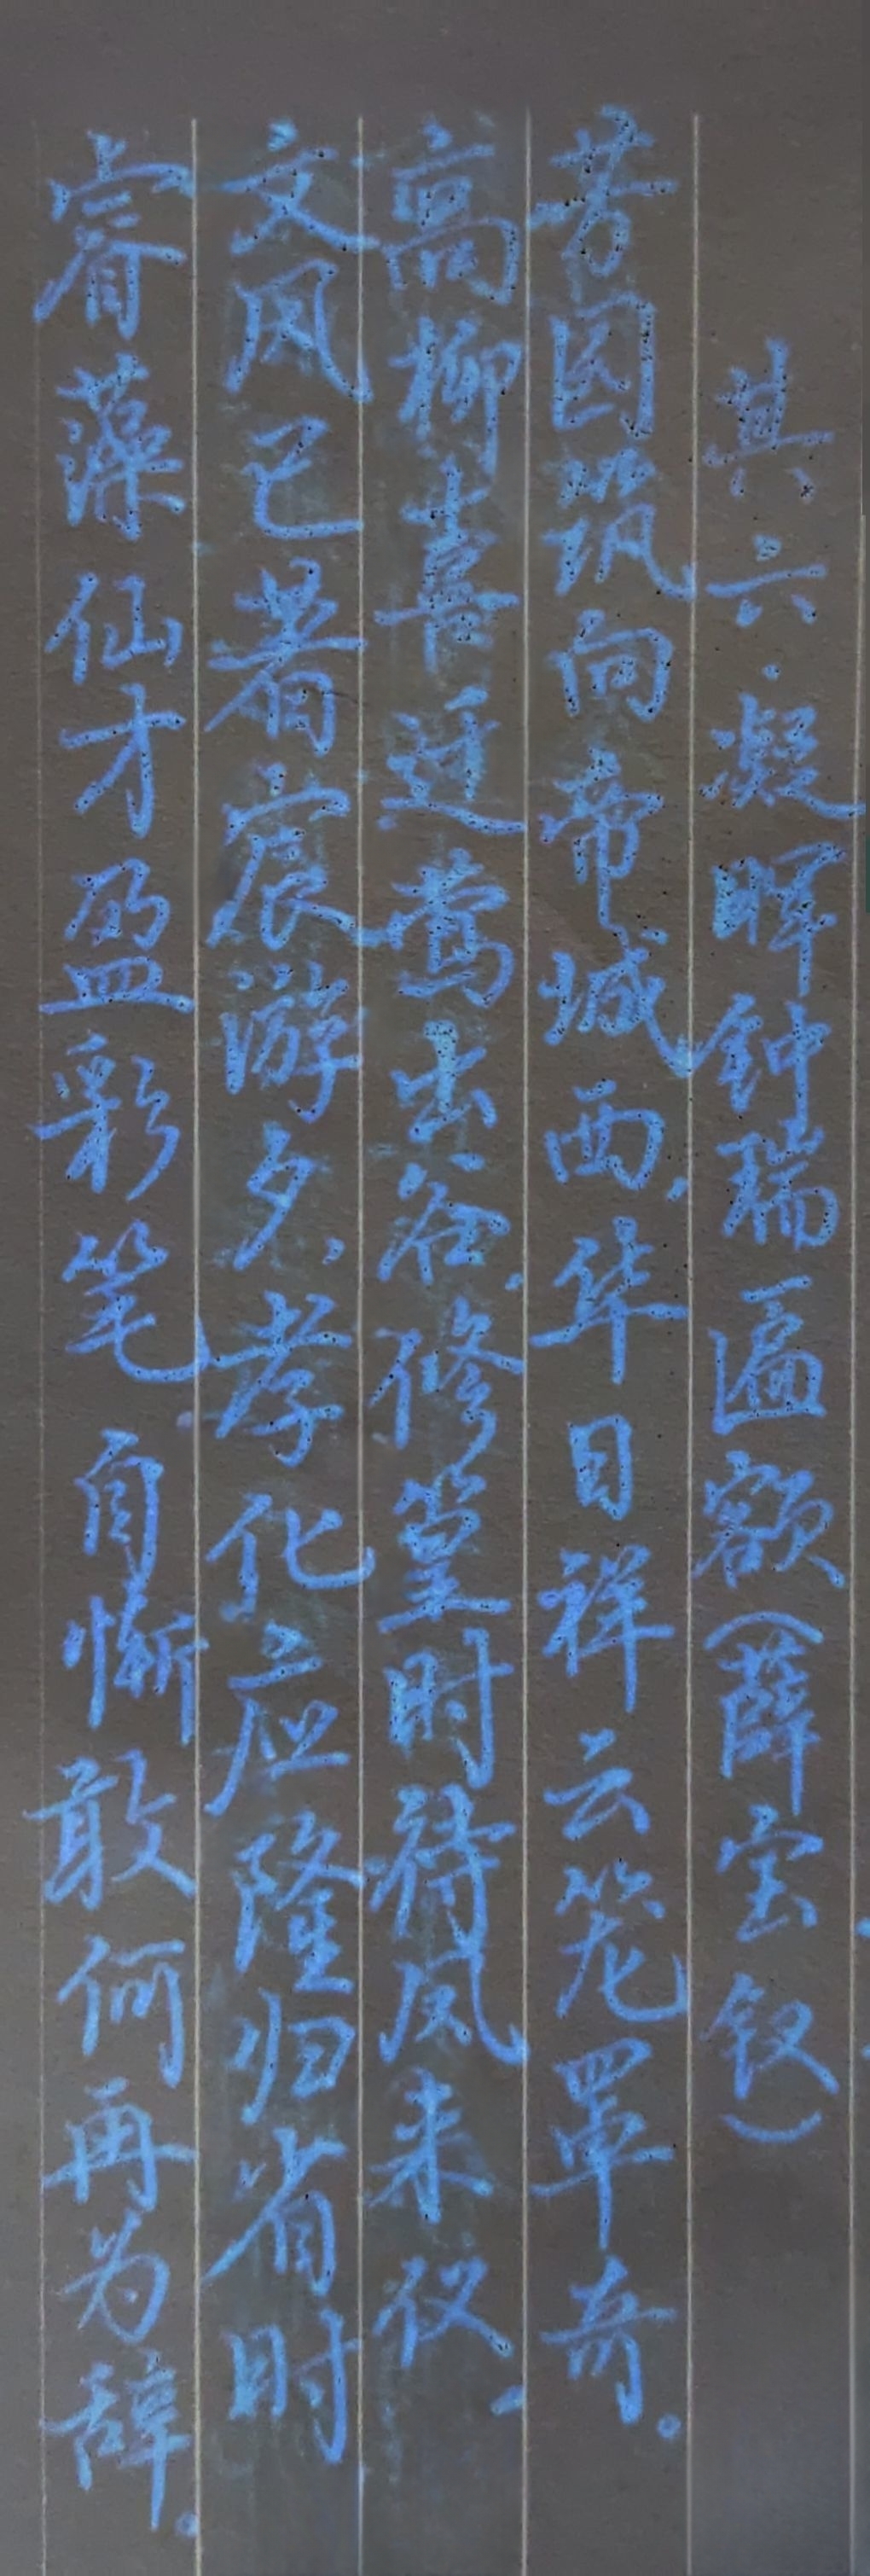 其六·凝晖钟瑞匾额(薛宝钗)
芳园筑向帝城西,华日祥云笼罩奇。
高柳喜迁莺出谷,修篁时待凤来仪。
文风已著宸游夕,孝化应隆归省时
睿藻仙才盈彩笔,自惭敢何再为辞。